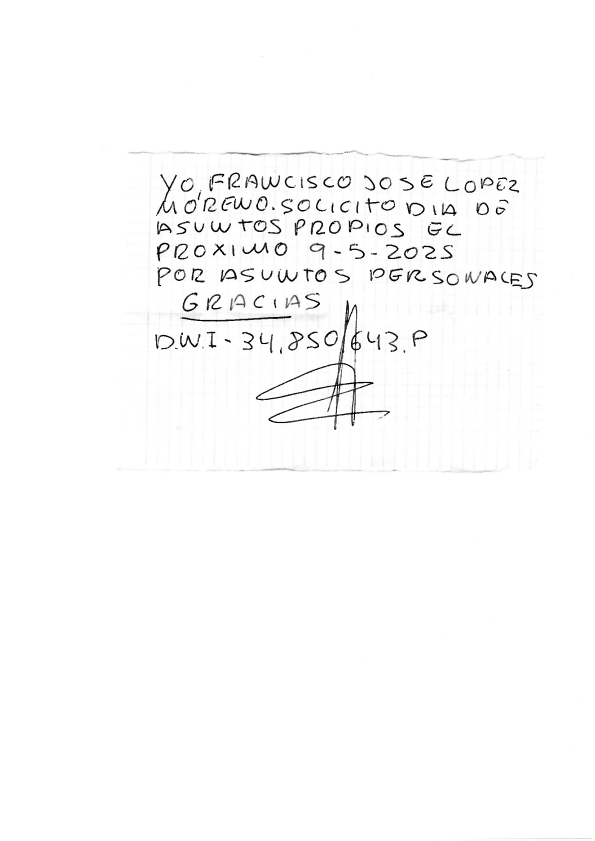 YO, FRANCISCO JOSE LOPEZ
MORENO. SOLICITO DIA DE
ASUNTOS PROPIOS EL
PROXIMO 9-5-2025
POR ASUNTOS PERSONALES
GRACIAS
D.N.I - 34.850643.P